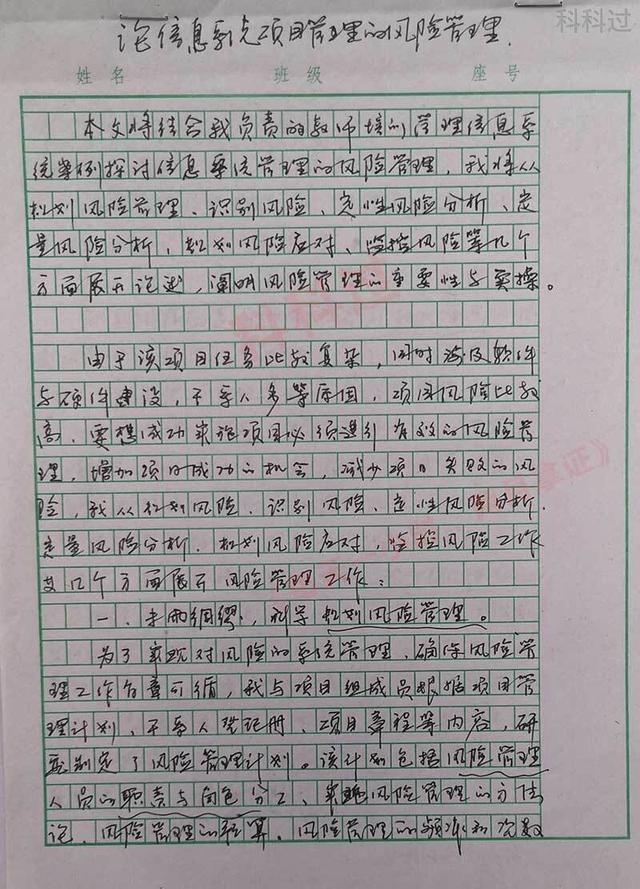 科科过
论信息系统项目管理的风险管理.
姓名 班级 座号
本文将结合我负责的教师培训管理信息系
统案例探讨信息系统管理的风险管理,我将从
规划风险管理、识别风险、定性风险分析、定
量风险分析,规划风险应对、监控风险等几个
方面展开论述,阐明风险管理的重要性与实操。
由于该项目任务比较复杂,同时涉及软件
与硬件建设,干系人多等原因,项目风险比较
高,要想成功实施项目必须进行有效的风险管
理,增加项目成功的机会,减少项目失败的风
险,我从规划风险、识别风险、定性风险分析.
定量风险分析、规划风险应对,监控风险工作
等几个方面展开风险管理工作:
一、未雨绸缪,科学规划风险管理。
为了实现对风险的系统管理、确保风险管
理工作有章可循,我与项目组成员根据项目管
理计划、干系人登记册、项目章程等内容,研
制定了风险管理计划。该计划包括风险管理
人员的职责与角色分工、实现风险管理的方法
论、风险管理的预算、风险管理的频率和次数